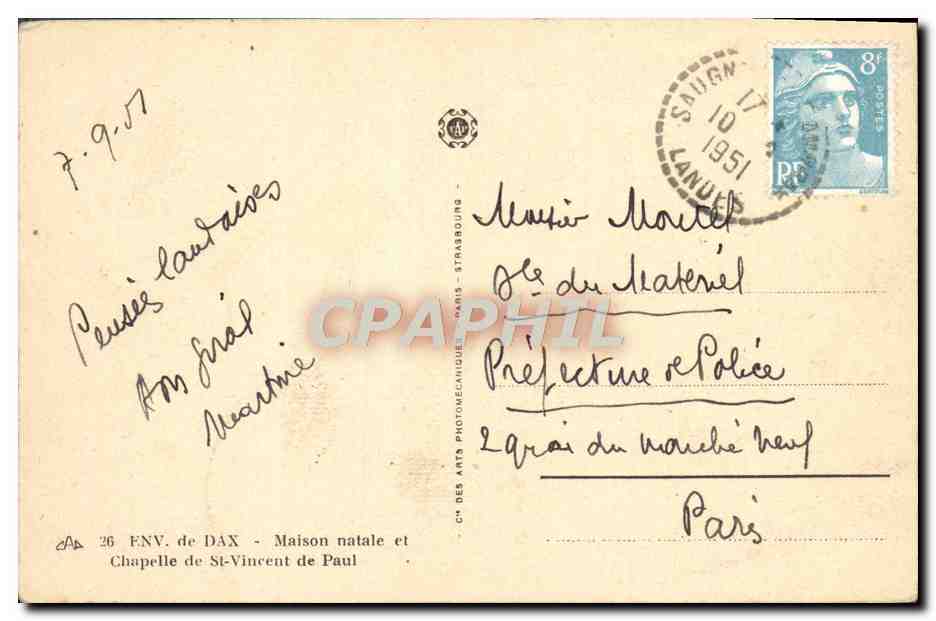 7.9.51
Pensées landaises
Martine
26 ENV. de DAX - Maison natale et
Chapelle de St-Vincent de Paul
Cie DES ARTS PHOTOMÉCANIQUES PARIS - STRASBOURG
CAP
SAUGN
17
10
1951
LANDES
8F
POSTES
RF
Monsieur
du Matériel
Préfecture de Police
2 quai du Marché Neuf
Paris
CPAPHIL